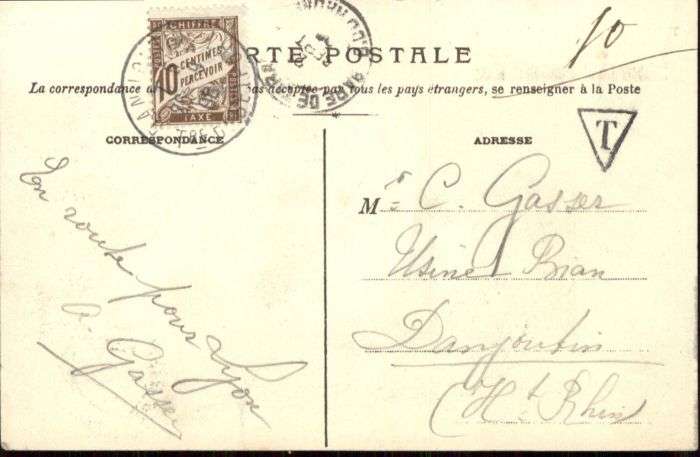 CARTE POSTALE
10
CHIFFRE
10 CENTIMES
A PERCEVOIR
TAXE
GARE DE
La correspondance au pas acceptée par tous les pays étrangers, se renseigner à la Poste
T
CORRESPONDANCE
ADRESSE
En route pour Lyon
a. Gasser
Mr C. Gasser
Usine Bian
Danjoutin
(Ht Rhin)